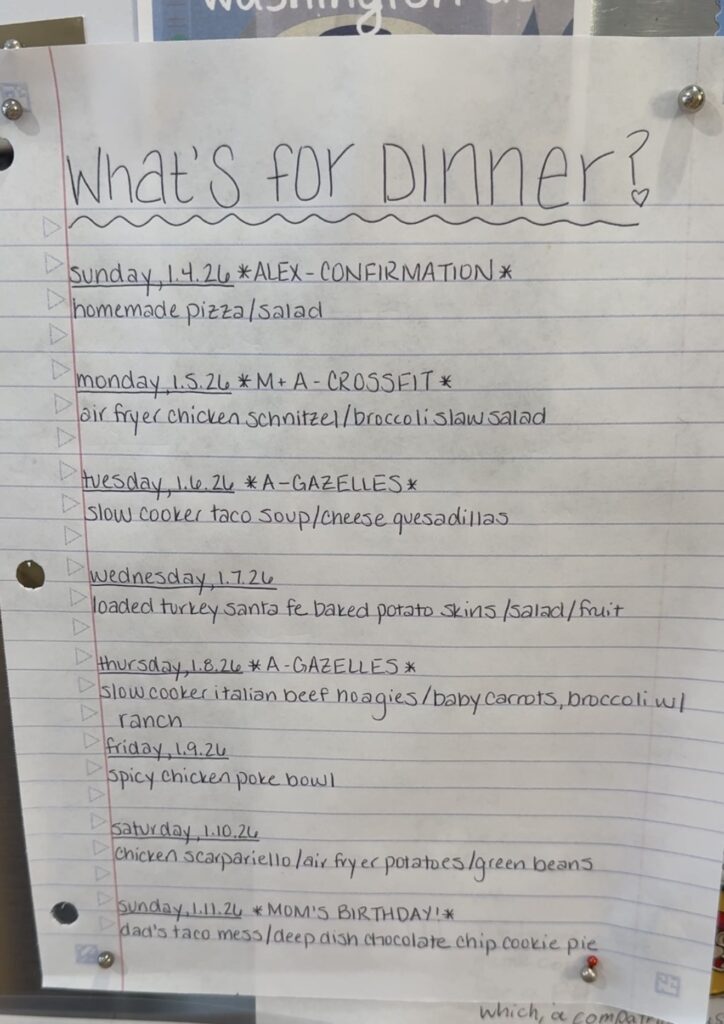 washington dc
What's for Dinner?
sunday, 1.4.26 *ALEX - CONFIRMATION*
homemade pizza/salad
monday, 1.5.26 *M + A - CROSSFIT*
air fryer chicken schnitzel/broccoli slaw salad
tuesday, 1.6.26 *A-GAZELLES*
slow cooker taco soup/cheese quesadillas
wednesday, 1.7.26
loaded turkey santa fe baked potato skins/salad/fruit
thursday, 1.8.26 *A-GAZELLES*
slow cooker italian beef hoagies/baby carrots, broccoli w/
ranch
friday, 1.9.26
spicy chicken poke bowl
saturday, 1.10.26
chicken scarpariello/air fryer potatoes/green beans
sunday, 1.11.26 *MOM'S BIRTHDAY!*
dad's taco mess/deep dish chocolate chip cookie pie
which, a